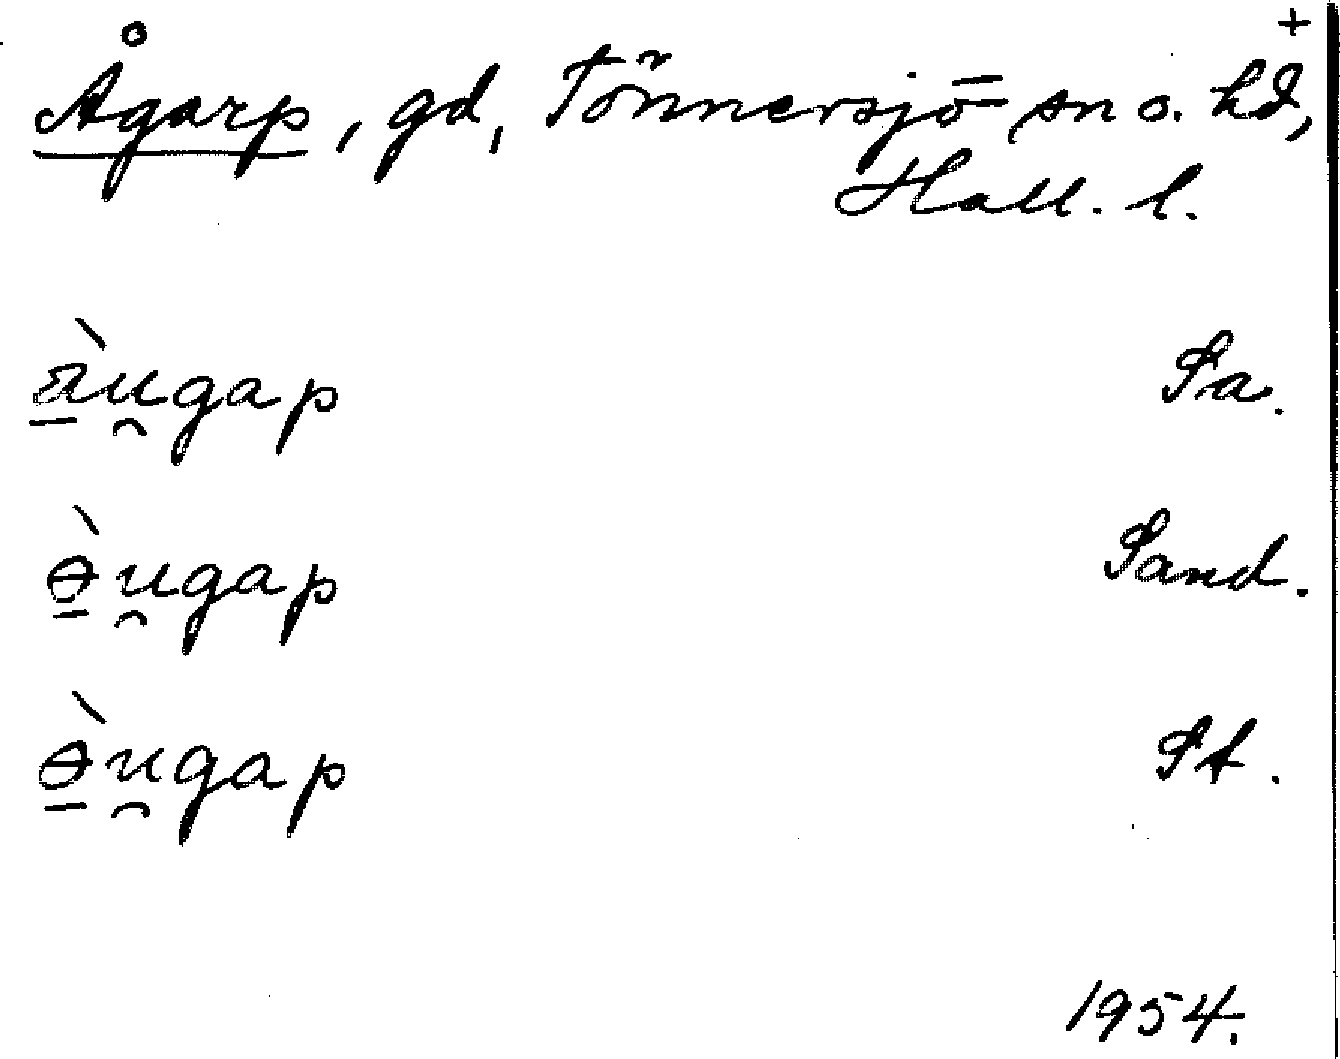 +
Ågarp, gd, Tönnersjö sn o. hd,
Hall. l.
à̠u̯gap Sa.
ə̠̀u̯gap Sand.
ə̠̀u̯gap St.
1954.